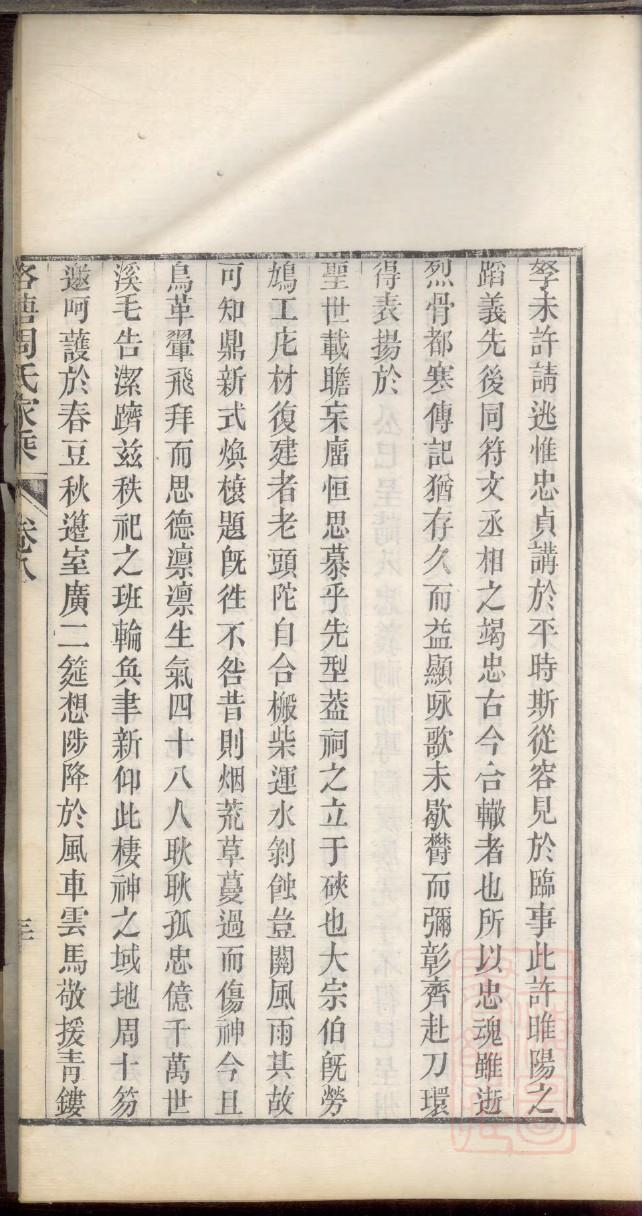 孥未許請逃惟忠貞講於平時斯從容見於臨事此許睢陽之
蹈義先後同符文丞相之竭忠古今合轍者也所以忠魂雖逝
烈骨都寒傳記猶存久而益顯咏歌未歇欝而彌彰齊赴刀環
得表揚於
聖世載瞻宗廟恒思慕乎先型葢祠之立于硤也大宗伯旣勞
鳩工庀材復建者老頭陀自合搬柴運水剝蝕豈關風雨其故
可知鼎新式煥榱題旣徃不咎昔則烟荒草蔓過而傷神今且
鳥革翬飛拜而思德凛凛生氣四十八人耿耿孤忠億千萬世
溪毛告潔躋兹秩祀之班輪奐聿新仰此棲神之域地周十笏
邀呵䕶於春豆秋籩室廣二筵想陟降於風車雲馬敬援青鏤
洛塘周氏家乘
卷八